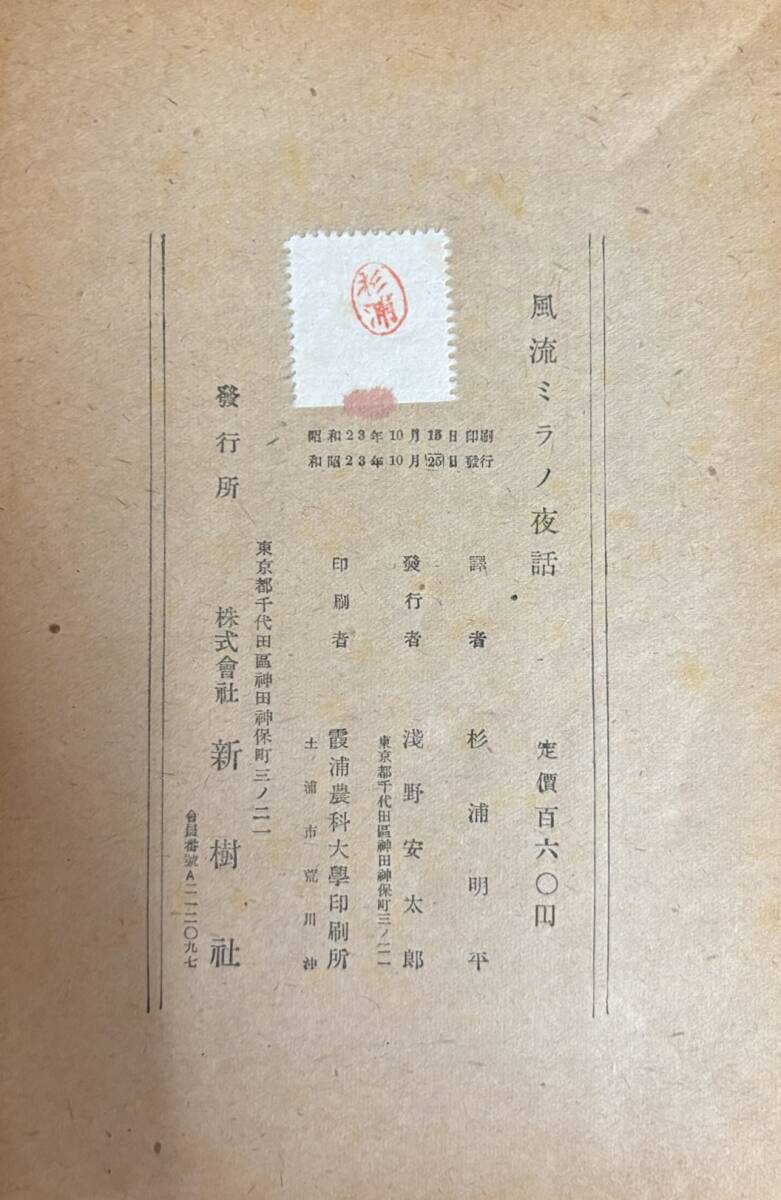 風流ミラノ夜話
定價百六〇円
杉浦
昭和23年10月15日印刷
和昭23年10月25日發行
譯者 杉浦明平
發行者 淺野安太郎
東京都千代田區神田神保町三ノ二一
印刷者 霞浦農科大學印刷所
土浦市荒川沖
東京都千代田區神田神保町三ノ二一
發行所 株式會社 新樹社
會員番號A二一二〇九七